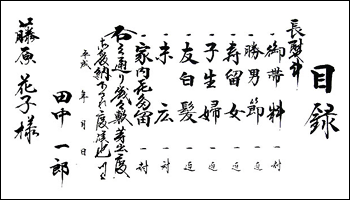 目録
長熨斗
一 御帯料 一対
一 勝男節 一連
一 寿留女 一連
一 子生婦 一連
一 友白髪 一連
一 末広 一対
一 家内喜多留 一対
右之通り幾久敷芽出度
御受納被下度候也
平成 年 月 日
田中一郎
藤原花子様